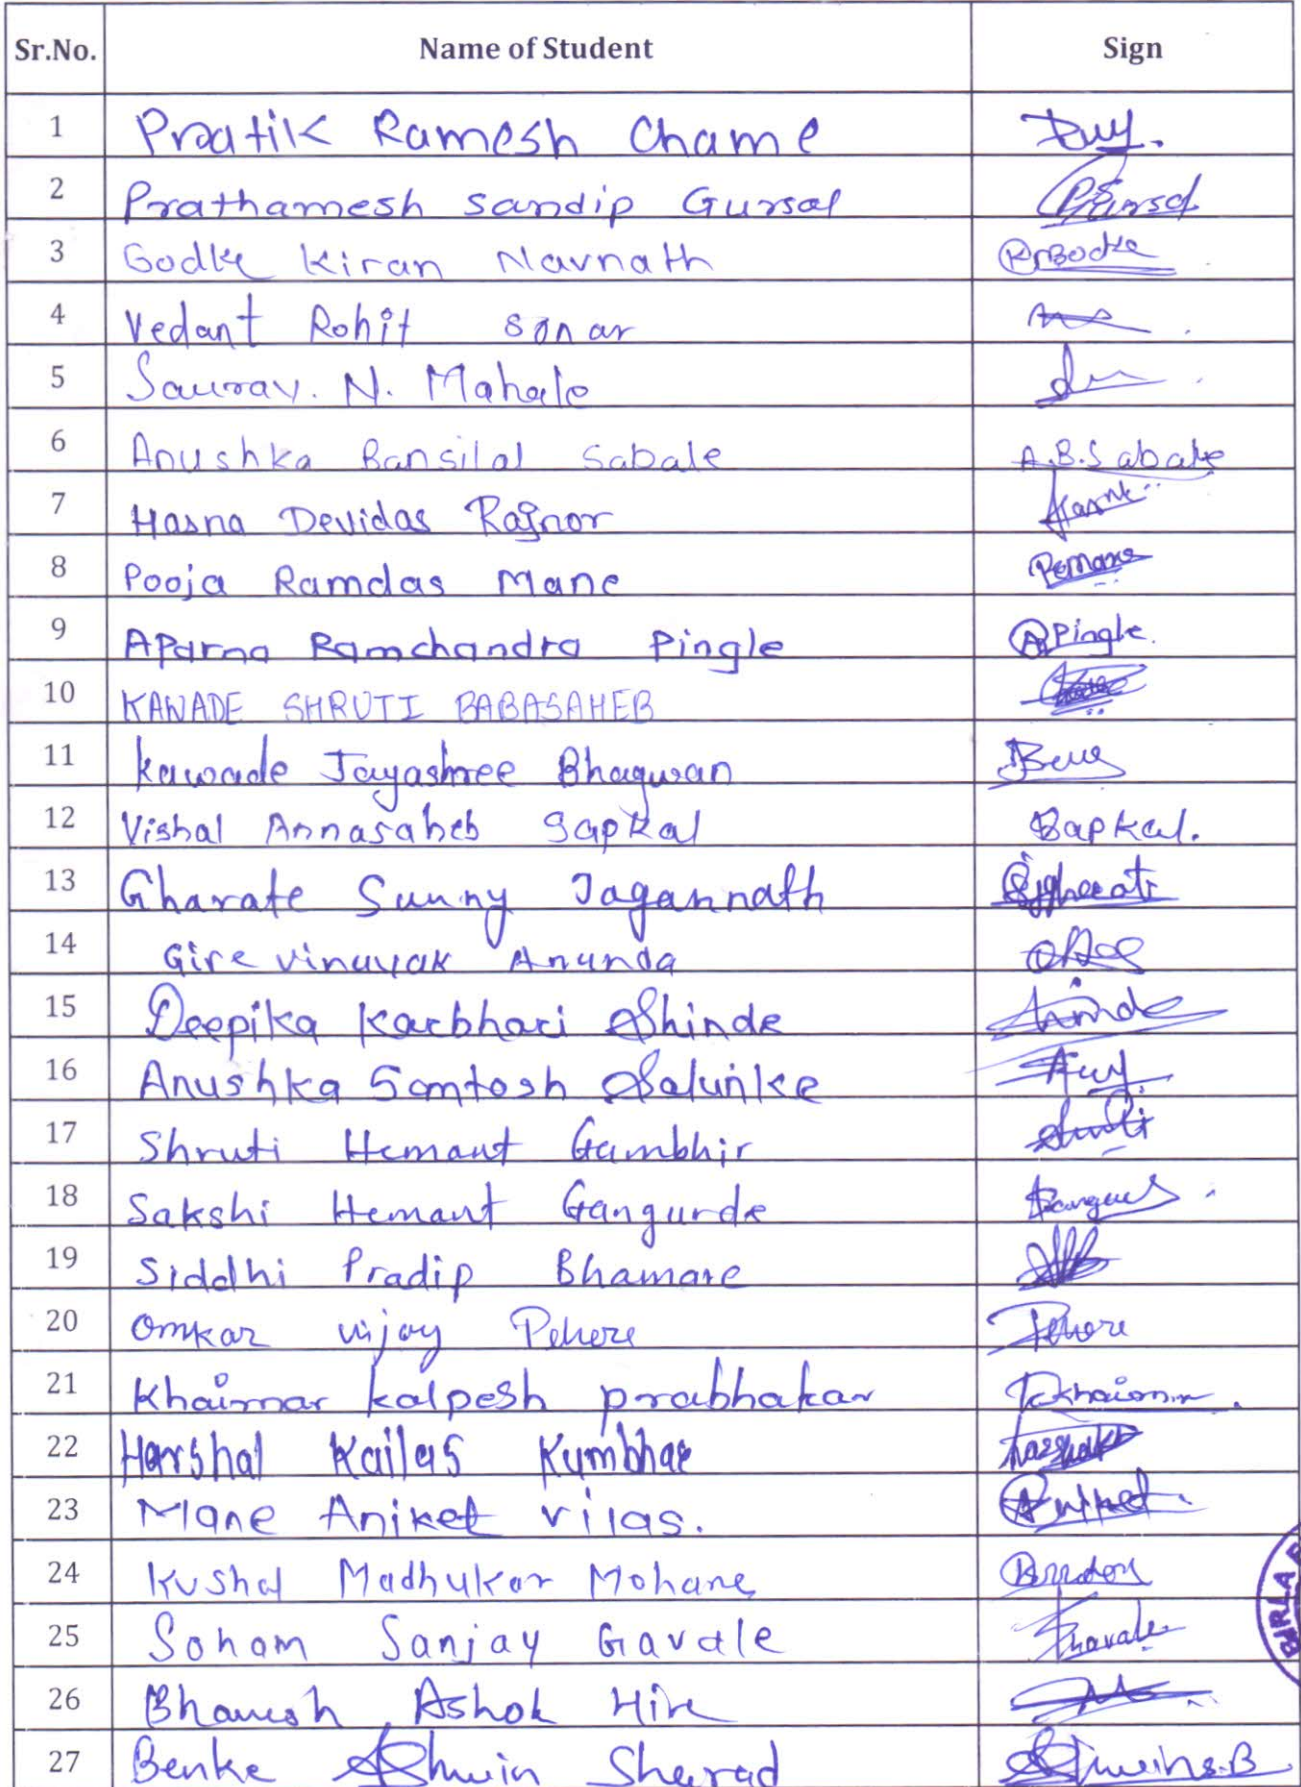 Sr.No. Name of Student Sign
1 Pratik Ramesh Chame
2 Prathamesh Sandip Gursal
3 Godke Kiran Navnath
4 Vedant Rohit Sonar
5 Saurav. N. Mahale
6 Anushka Bansilal Sabale A.B.Sabale
7 Hasna Devidas Rajnor
8 Pooja Ramdas Mane
9 Aparna Ramchandra Pingle A Pingle.
10 KAWADE SHRUTI BABASAHEB
11 Kawade Jayashree Bhagwan
12 Vishal Annasaheb Sapkal Sapkal.
13 Gharate Sunny Jagannath
14 Gire Vinayak Ananda
15 Deepika Karbhari Shinde
16 Anushka Santosh Salunke
17 Shruti Hemant Gambhir
18 Sakshi Hemant Gangurde
19 Siddhi Pradip Bhamare
20 Omkar Vijay Pehere Pehere
21 Khairnar Kalpesh prabhakar
22 Harshal Kailas Kumbhar
23 Mane Aniket Vilas. Aniket.
24 Kushal Madhukar Mohane
25 Soham Sanjay Gavale
BIRLA
26 Bhavesh Ashok Hire
27 Benke Ashwin Sharad